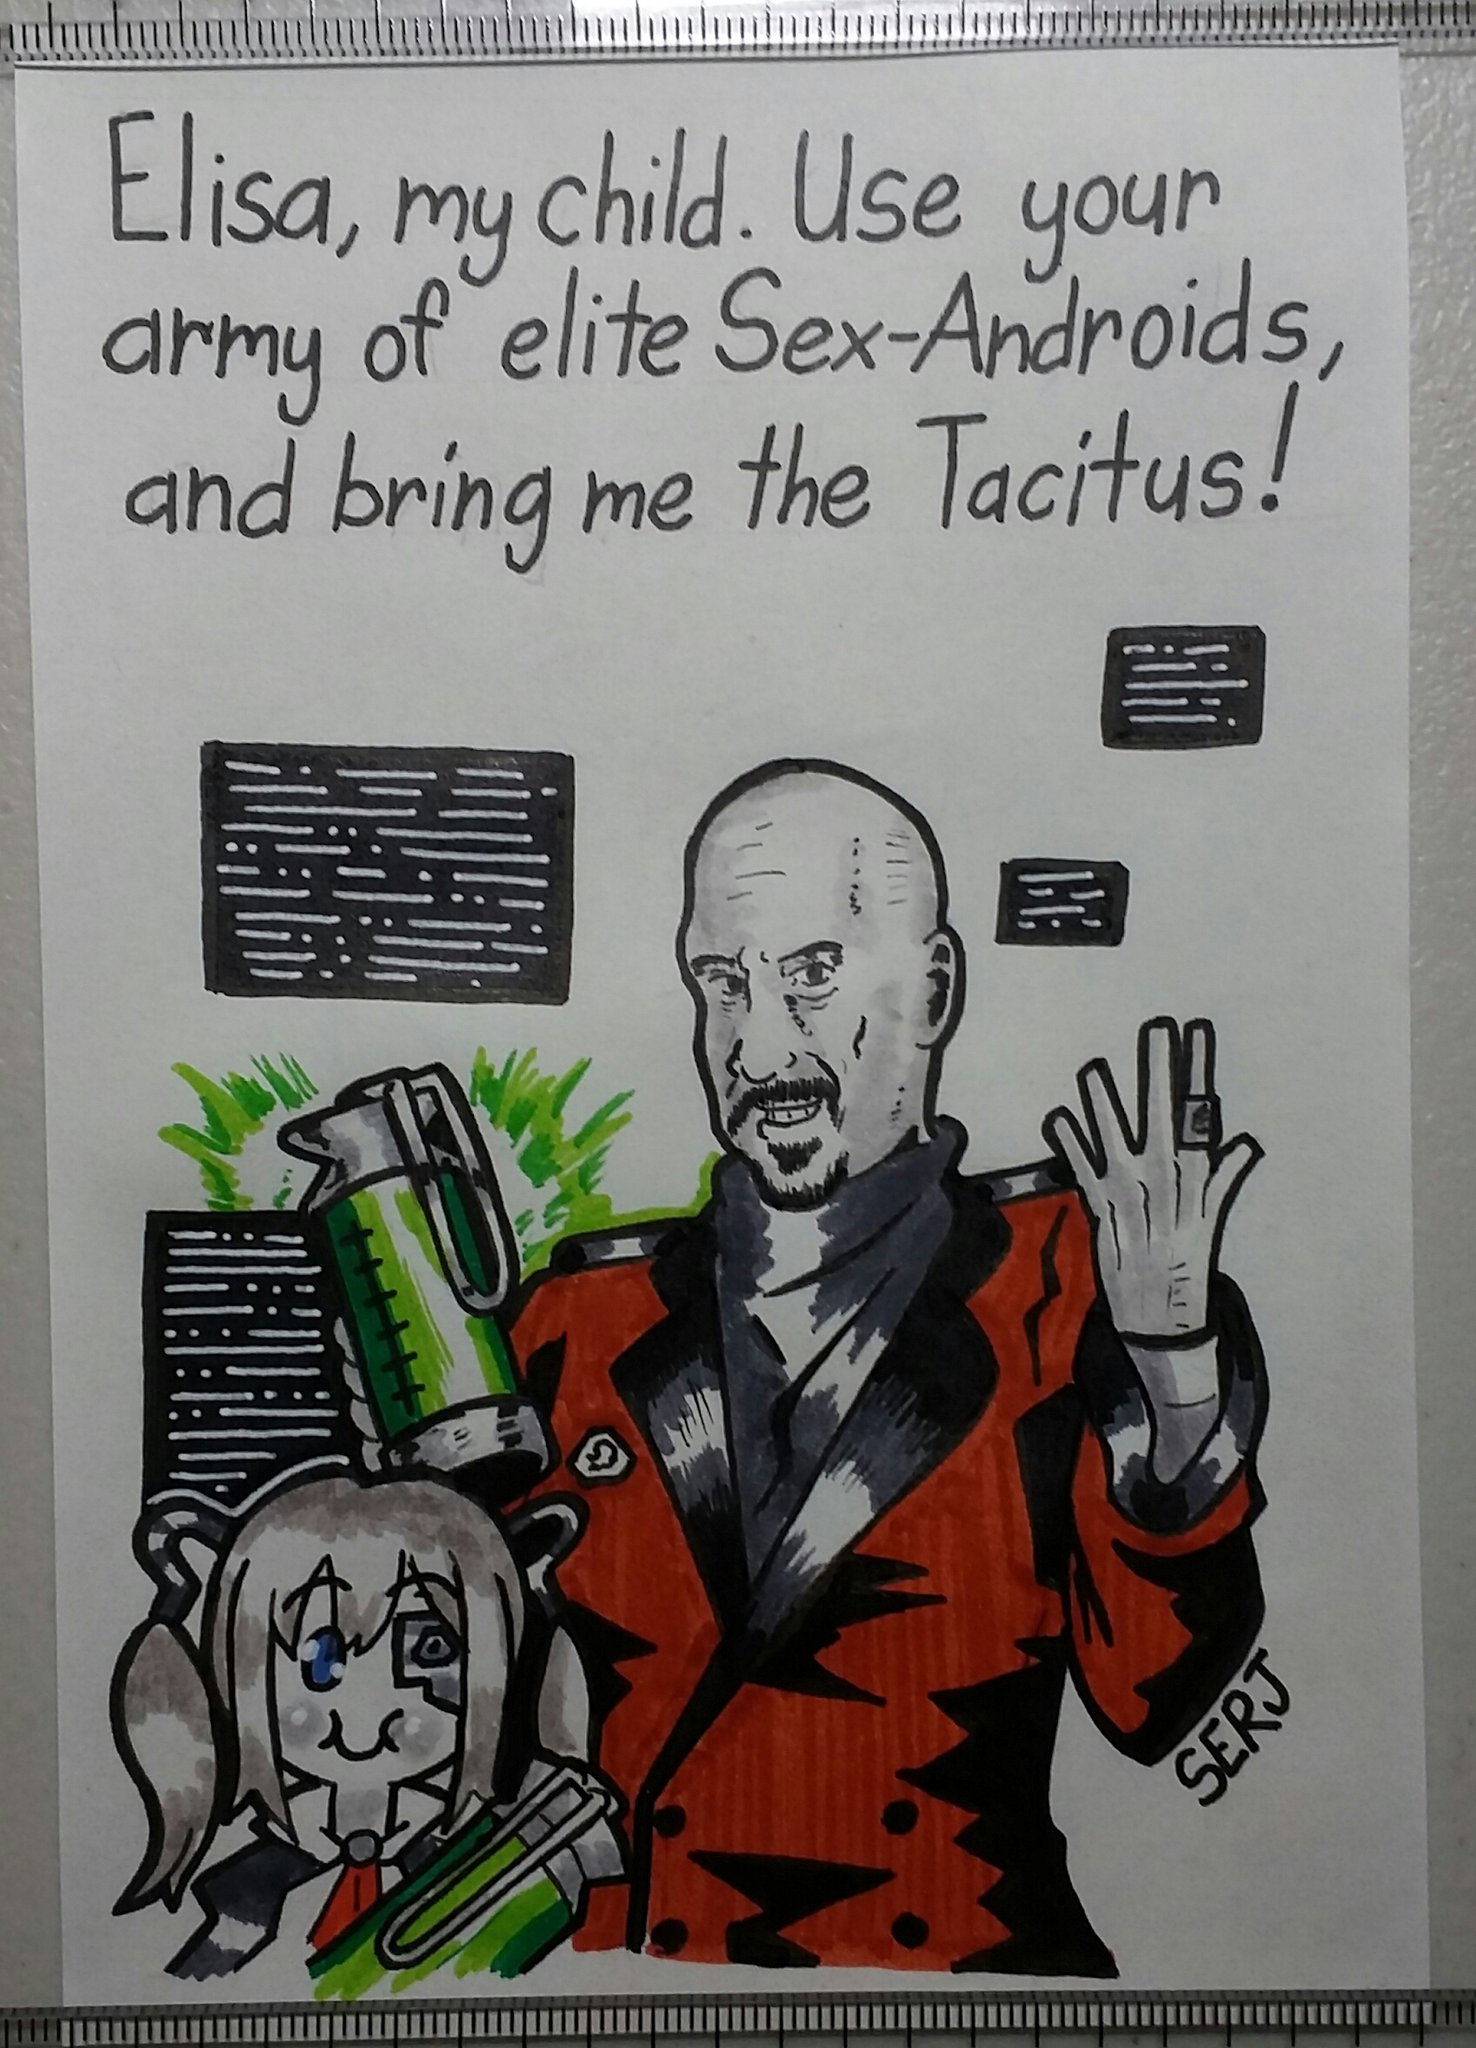 Elisa, my child. Use your
army of elite Sex-Androids,
and bring me the Tacitus!
SERJ